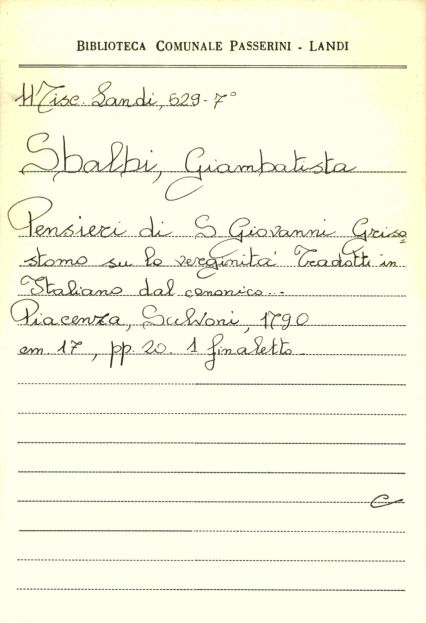 BIBLIOTECA COMUNALE PASSERINI - LANDI
Misc. Landi, 529-7°
Sbalbi, Giambatista
Pensieri di S Giovanni Griso=
stomo su la verginità Tradotti in
Italiano dal canonico...
Piacenza, Salvoni, 1790
cm 17, pp. 20. 1 finaletto.
C